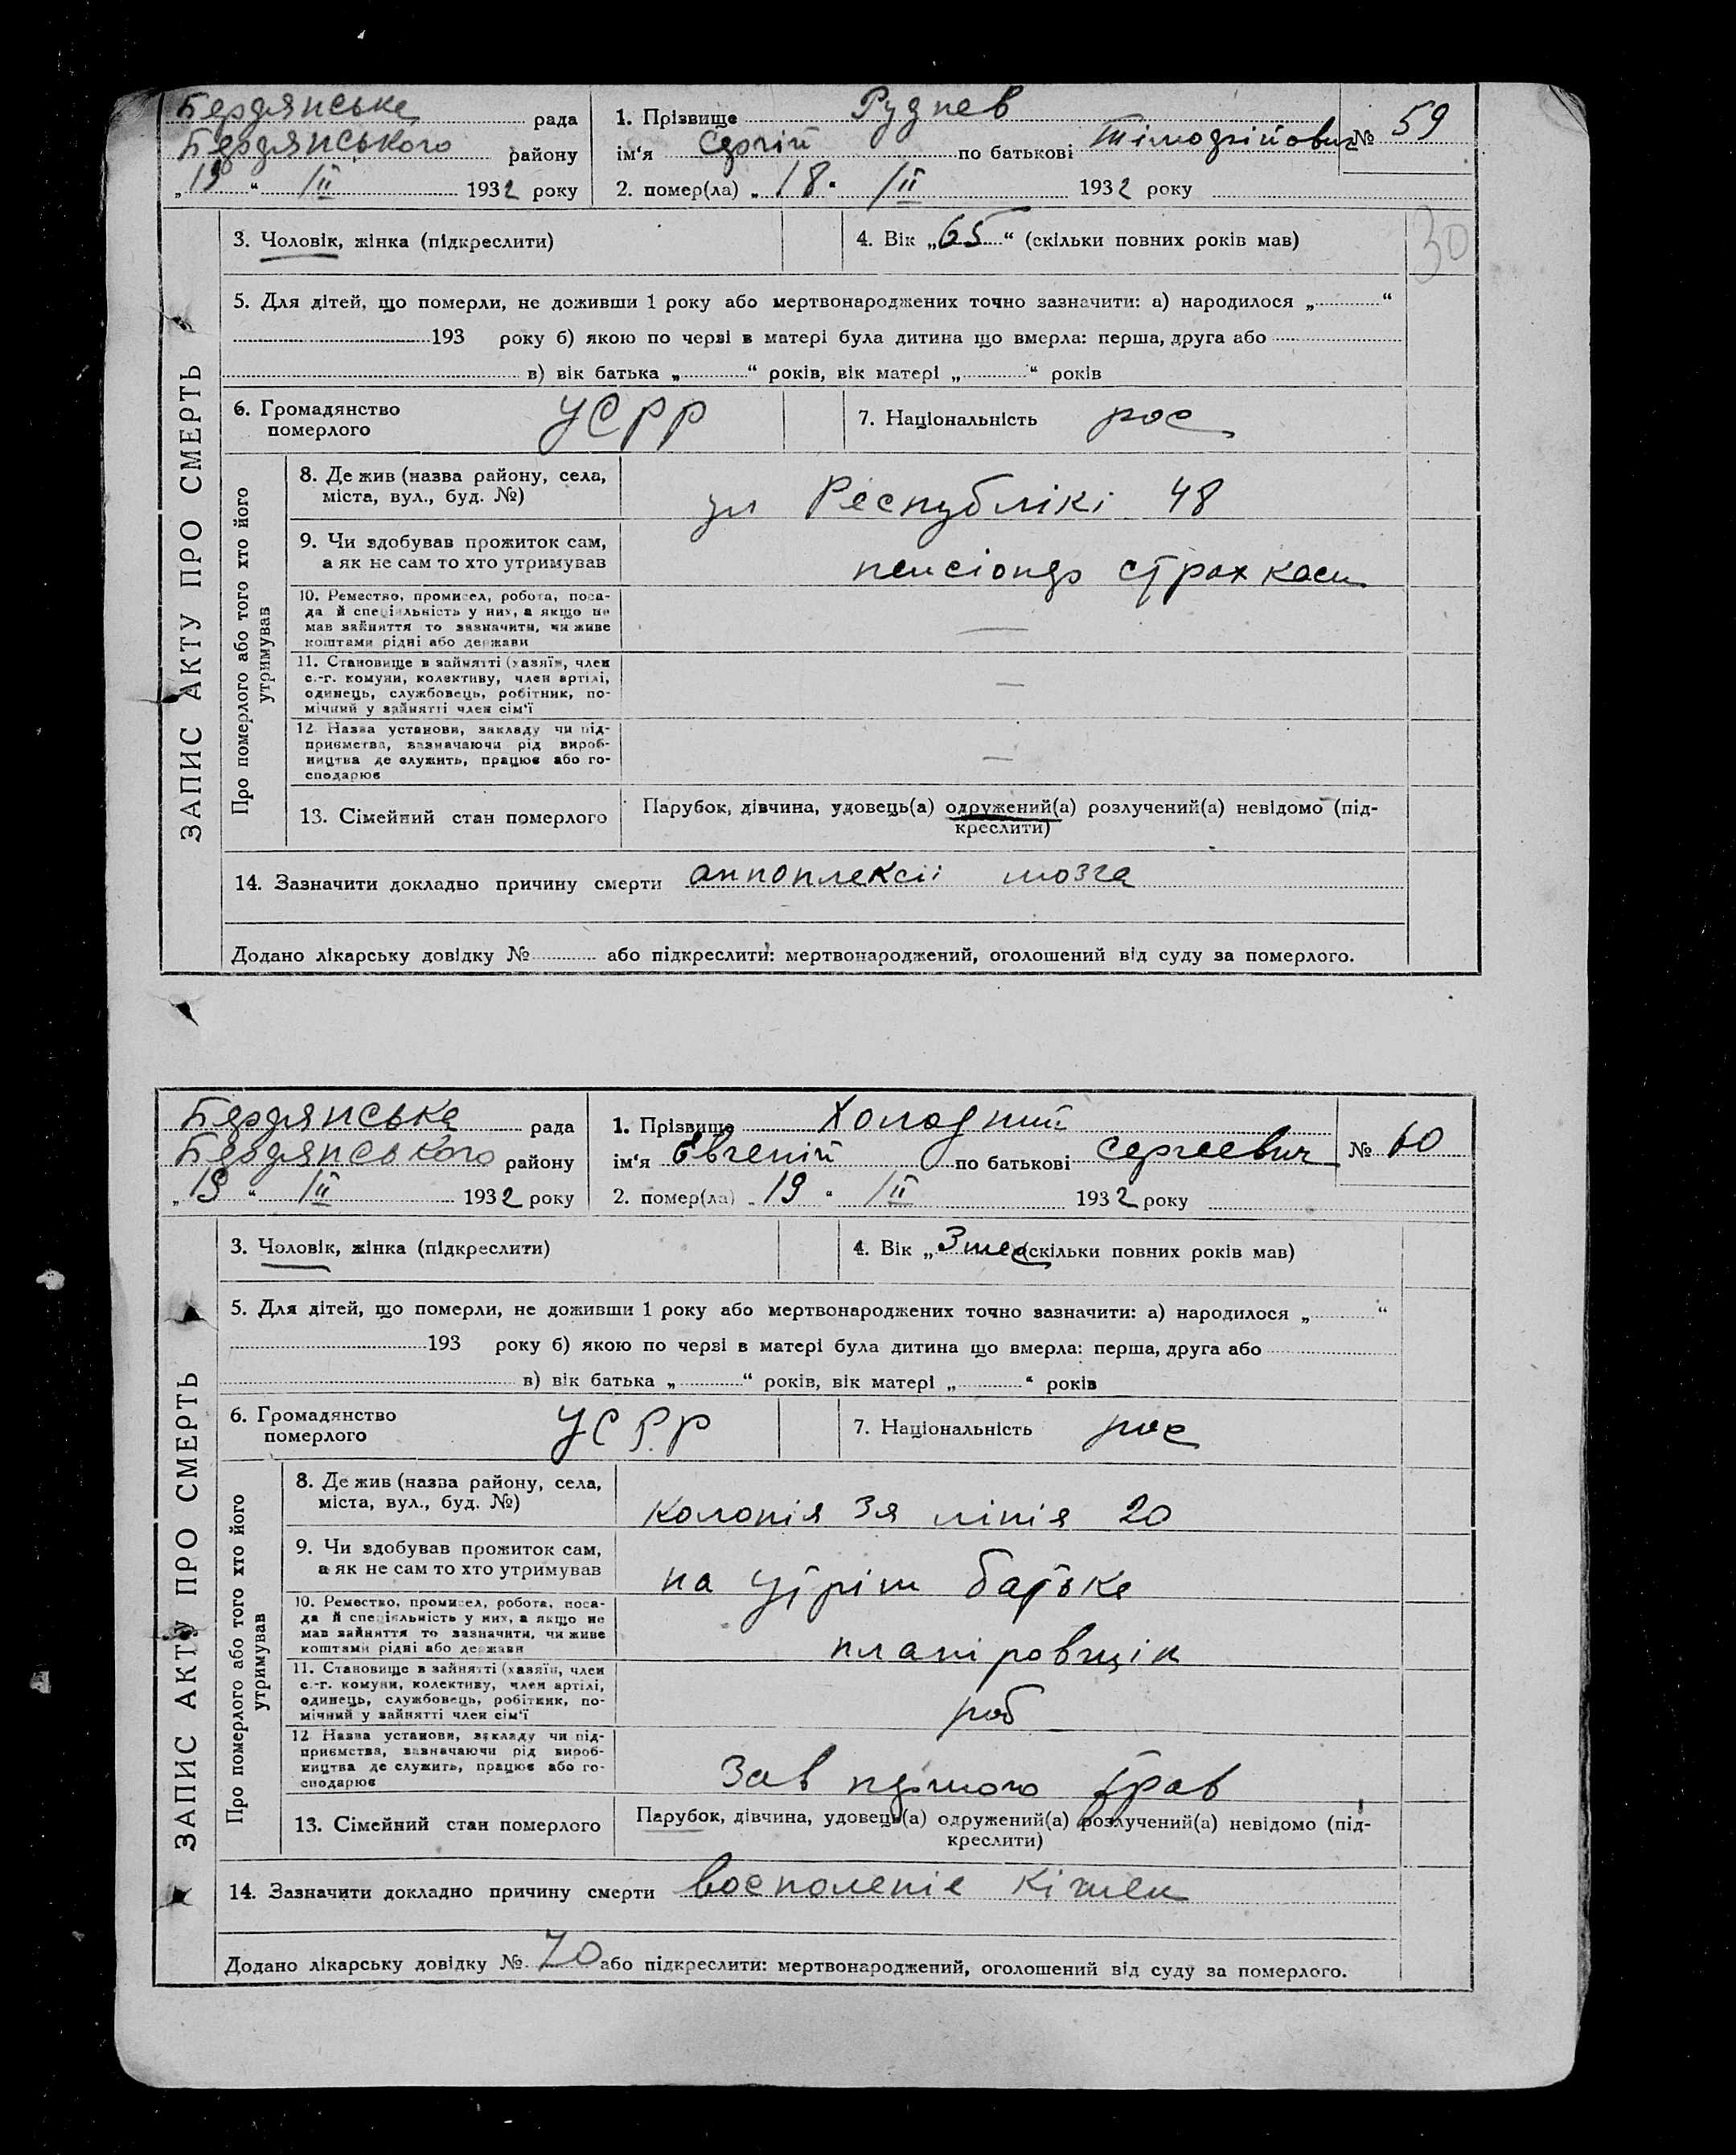 Бердянська рада 1. Прізвище Руднев № 59
Бердянського району ім'я Сергій по батькові Тімофрійович
„19“ /II 1932 року 2. помер(ла) „18“ /II 1932 року
3. Чоловік, жінка (підкреслити) 4. Вік „65“ (скільки повних років мав) 30
5. Для дітей, що померли, не доживши 1 року або мертвонароджених точно зазначити: а) народилося „ “
193 року б) якою по черзі в матері була дитина що вмерла: перша, друга або
в) вік батька „ “ років, вік матері „ “ років
6. Громадянство УСРР 7. Національність рос
померлого
ЗАПИС АКТУ ПРО СМЕРТЬ
Про померлого або того хто його
утримував
8. Де жив (назва району, села,
міста, вул., буд. №) ул Республікі 48
9. Чи здобував прожиток сам,
а як не сам то хто утримував пенсіонер страхкаси
10. Ремество, промисел, робота, поса-
да й спеціяльність у них, а якщо не
мав зайняття то зазначити, чи живе —
коштами рідні або держави
11. Становище в зайнятті (хазяїн, член
с.-г. комуни, колективу, член артілі,
одинець, службовець, робітник, по- —
мічний у зайнятті член сім'ї
12. Назва установи, закладу чи під-
приємства, зазначаючи рід вироб-
ництва де служить, працює або го- —
сподарює
13. Сімейний стан померлого Парубок, дівчина, удовець(а) одружений(а) розлучений(а) невідомо (під-
креслити)
14. Зазначити докладно причину смерти апоплексіі мозга
Додано лікарську довідку № або підкреслити: мертвонароджений, оголошений від суду за померлого.
Бердянська рада 1. Прізвище Холодний № 60
Бердянського району ім'я Євгеній по батькові Сергеевич
„19“ /II 1932 року 2. помер(ла) „19“ /II 1932 року
3. Чоловік, жінка (підкреслити) 4. Вік „3 мес (скільки повних років мав)
5. Для дітей, що померли, не доживши 1 року або мертвонароджених точно зазначити: а) народилося „ “
193 року б) якою по черзі в матері була дитина що вмерла: перша, друга або
в) вік батька „ “ років, вік матері „ “ років
6. Громадянство УСРР 7. Національність рос
померлого
ЗАПИС АКТУ ПРО СМЕРТЬ
Про померлого або того хто його
утримував
8. Де жив (назва району, села,
міста, вул., буд. №) Колонія 3я лінія 20
9. Чи здобував прожиток сам,
а як не сам то хто утримував на утрім батька
10. Ремество, промисел, робота, поса-
да й спеціяльність у них, а якщо не
мав зайняття то зазначити, чи живе планіровщік
коштами рідні або держави
11. Становище в зайнятті (хазяїн, член
с.-г. комуни, колективу, член артілі,
одинець, службовець, робітник, по- роб
мічний у зайнятті член сім'ї
12. Назва установи, закладу чи під-
приємства, зазначаючи рід вироб-
ництва де служить, працює або го- Зав
сподарює
13. Сімейний стан померлого Парубок, дівчина, удовець(а) одружений(а) розлучений(а) невідомо (під-
креслити)
14. Зазначити докладно причину смерти восполеніе кішек
Додано лікарську довідку № 70 або підкреслити: мертвонароджений, оголошений від суду за померлого.